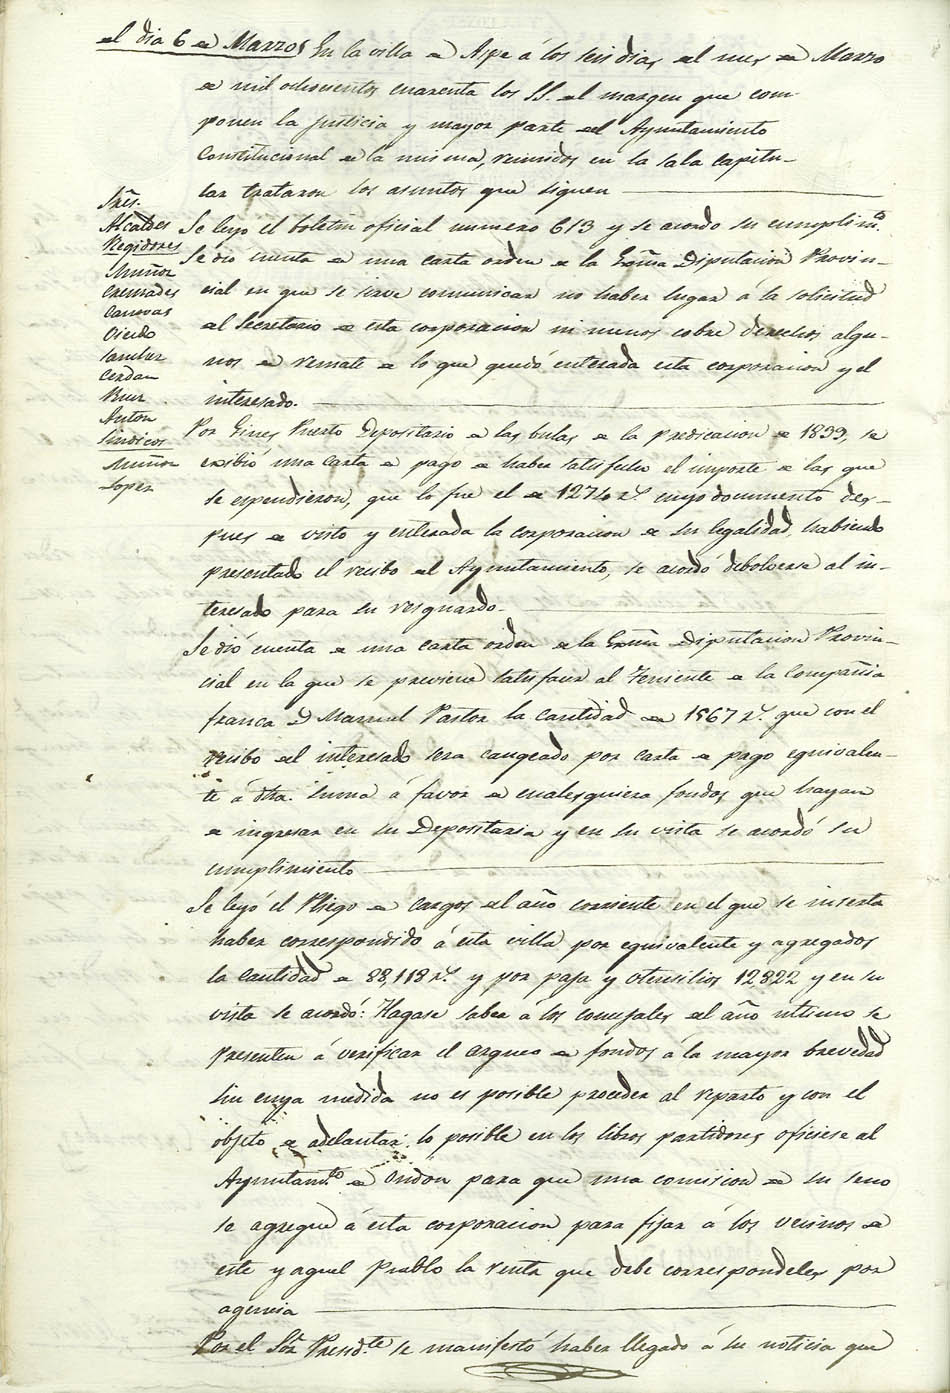 el dia 6 de Marzo. En la villa de Aspe á los seis dias del mes de Marzo
de mil ochocientos cuarenta los SS. del margen que com-
ponen la Justicia y mayor parte del Ayuntamiento
Constitucional de la misma, reunidos en la sala capitu-
lar trataron los asuntos que siguen
Sres.
Alcaldes
Regidores
Muñoz
Cremades
Canovas
Oiedo
Cerdan
Ruiz
Anton
Sindicos
Muñoz
Lopez
Se leyó el boletin oficial numero 613 y se acordo su cumplimto.
Se dió cuenta de una carta orden de la Exma Diputacion Provin-
cial en que se sirve comunicar no haber lugar á la solicitud
del Secretario de esta corporacion ni menos cobre derechos algu-
nos de remate de lo que quedó enterada esta corporacion y el
interesado.
Por Gines Puerto Depositario de las bulas de la predicacion de 1839, se
exibió una carta de pago de haber satisfecho el importe de las que
se espendieron, que lo fue el de 1274 rs. cuyo documento des-
pues de visto y enterada la corporacion de su legalidad, habiendo
presentado el recibo del Ayuntamiento, se acordó debolverse al in-
teresado para su resguardo.
Se dió cuenta de una carta orden de la Exma Diputacion Provin-
cial en la que se previene satisfacer al Teniente de la Compañia
franca D. Manuel Pastor la cantidad de 1567 rs. que con el
recibo del interesado sera cangeado por carta de pago equivalen-
te á dha. suma á favor de cualesquiera fondos que hayan
de ingresar en su Depositaria y en su vista se acordó su
cumplimiento
Se leyó el Pliego de cargos del año corriente en el que se inserta
haber correspondido á esta villa por equivalente y agregados
la cantidad de 88,118 rs. y por paja y utensilios 12,822 y en su
vista se acordó: Hagase saber á los concejales del año ultimo se
presenten á verificar el arqueo de fondos á la mayor brevedad
sin cuya medida no es posible proceder al reparto y con el
objeto de adelantar lo posible en los libros partidores oficiese al
Ayuntamto. de Ondon para que una comision de su seno
se agregue á esta corporacion para fijar á los vecinos de
este y aquel Pueblo la renta que debe corresponderles por
agencia
Por el Sor. Presidte. se manifestó haber llegado á su noticia que